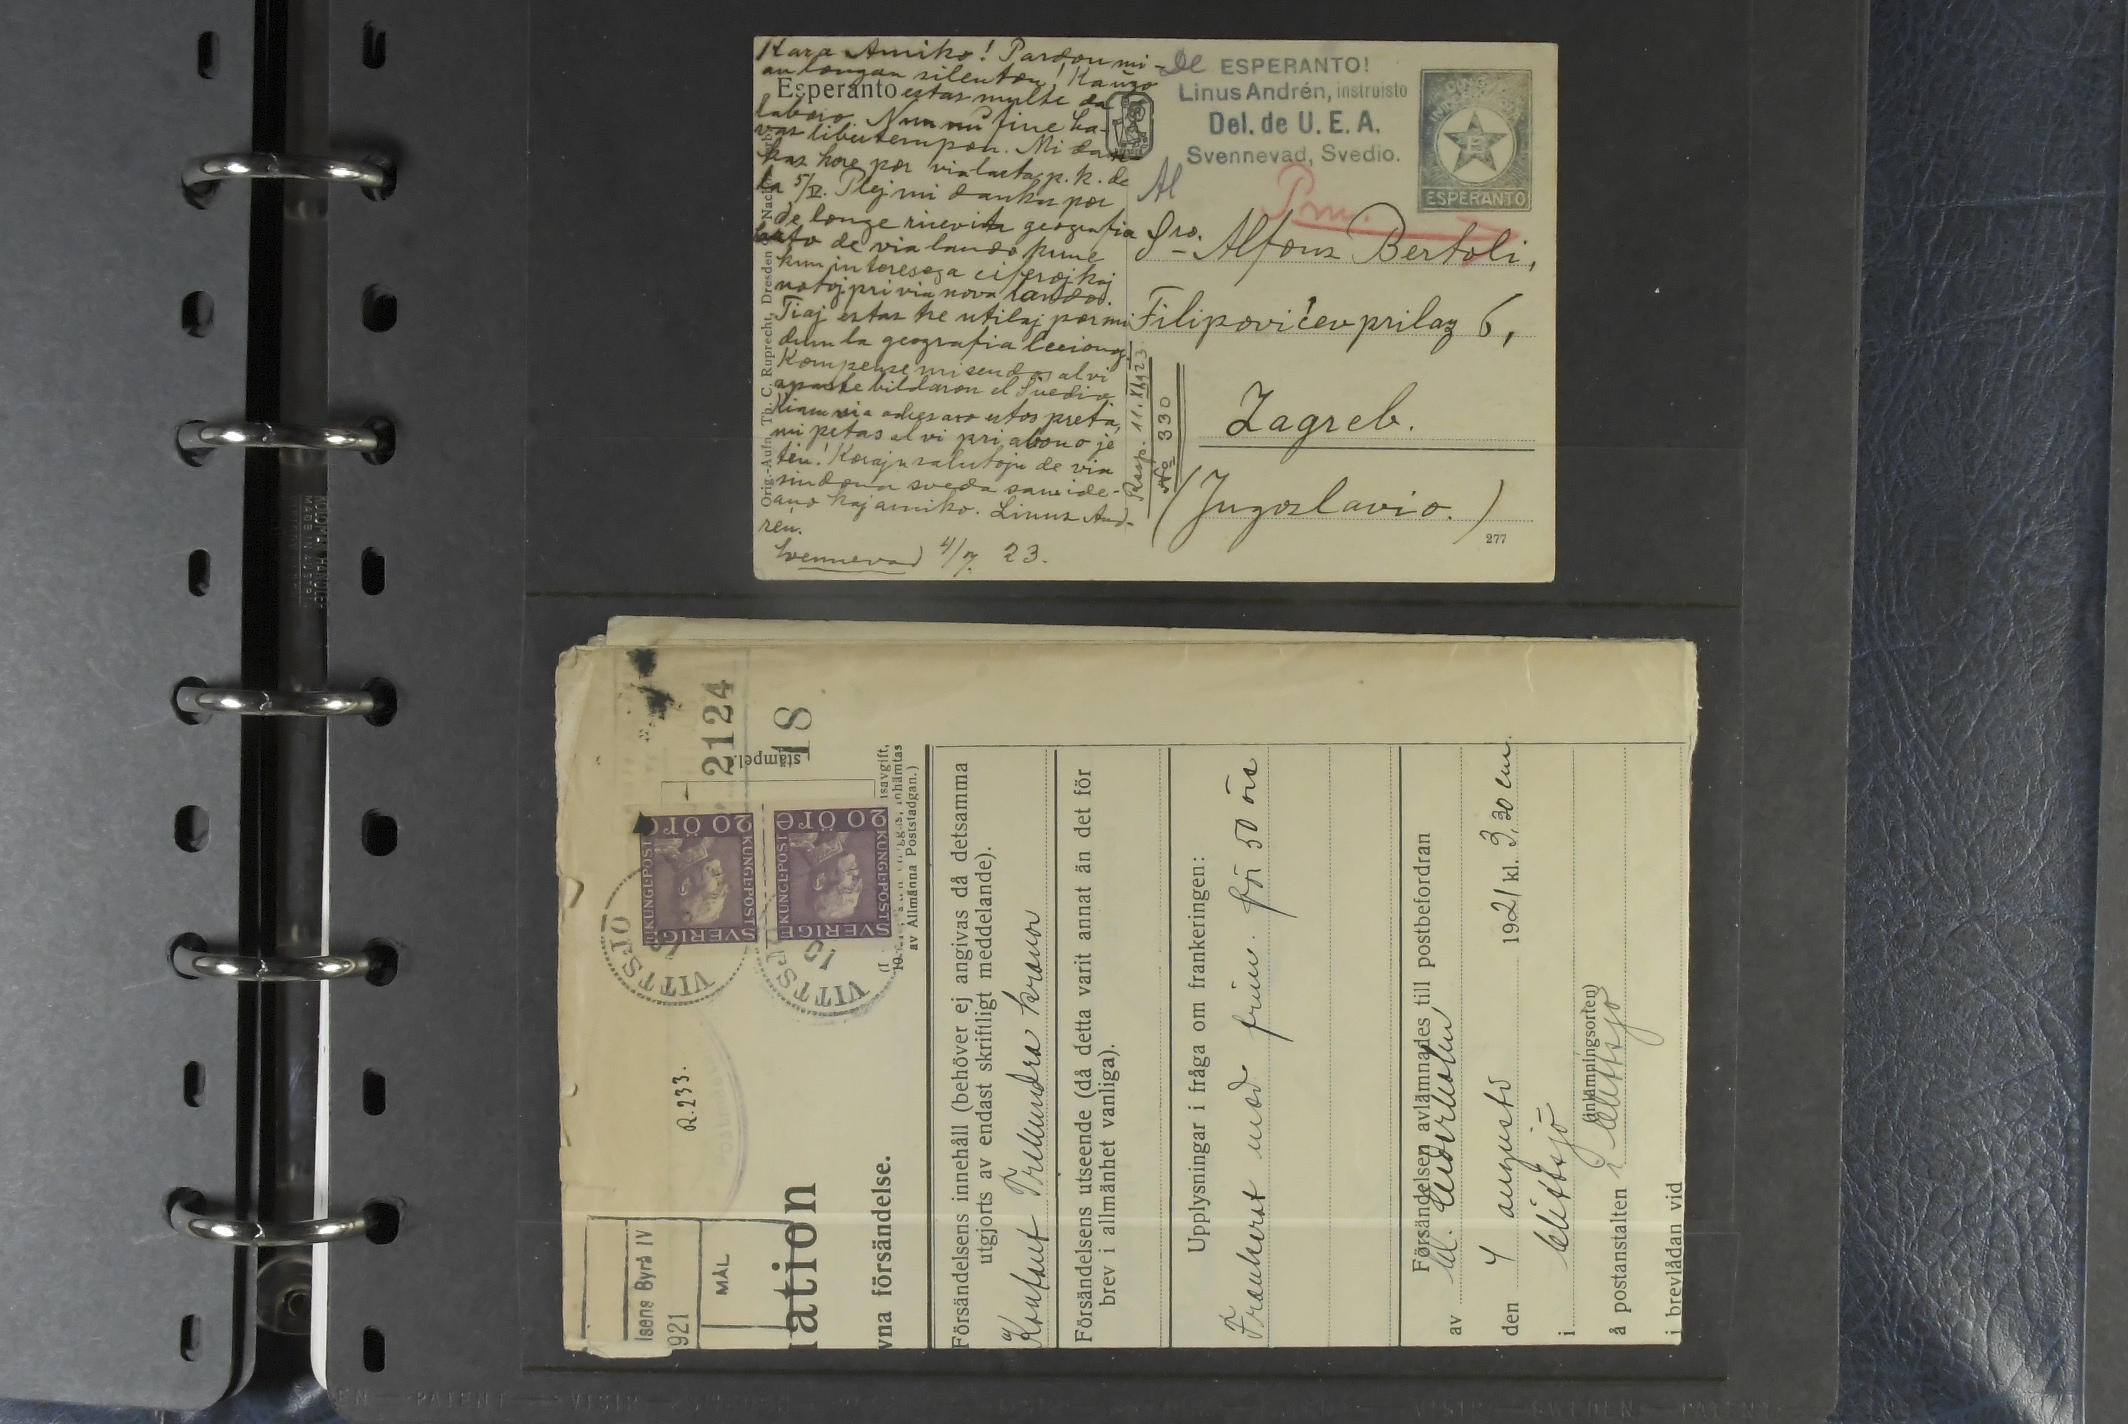 Kara Amiko! Pardonu mi-
an longan silenton! Kaŭzo
Esperanto estas multe da
laboro. Nun mi fine ha-
vas libertempon. Mi dan-
kas kore por via lasta p. k. de
la 5/IV. Plej mi dankas por
de longe ricevita geografia
karto de via lando kune
kun interesega ciferoj kaj
notoj pri via nova lando.
Tiaj estas tre utilaj por mi
dum la geografia lecionoj.
Kompense mi sendos al vi
bildaron el Svedio
Kiam via adresaro estos preta,
mi petas al vi pri abono je
ĝin! Korajn salutojn de via
sindona sveda samide-
ano kaj amiko. Linus And-
rén.
Svennevad 4/7. 23.
Orig.-Aufn. Th. C. Ruprecht, Dresden
De ESPERANTO!
Linus Andrén, instruisto
Del. de U. E. A.
Svennevad, Svedio.
ESPERANTO
Al
Sro.
Alfons Bertoli,
Filipovićev prilaz 6,
Zagreb.
(Jugoslavio.)
277
Resp. 11.XI.1923
No 330
2124
stämpel.
18
20 ÖRE
KUNGL·POST
SVERIGE
20 ÖRE
KUNGL·POST
SVERIGE
VITTSJÖ
VITTSJÖ
10
R.233.
isens Byrå IV
921
MÅL
ation
vna försändelse.
isavgift,
inhämtas
av Allmänna Poststadgan.)
Försändelsens innehåll (behöver ej angivas då detsamma
utgjorts av endast skriftligt meddelande).
Kontant Trehundra kronor
Försändelsens utseende (då detta varit annat än det för
brev i allmänhet vanliga).
Upplysningar i fråga om frankeringen:
Frankerat med frim. för 50 öre
Försändelsen avlämnades till postbefordran
av
den 4 augusti 1921 kl. 3,30 em.
i Vittsjö
(inlämningsorten)
å postanstalten i Vittsjö
i brevlådan vid
PATENT VISIR
VISIR SWEDEN PATENT